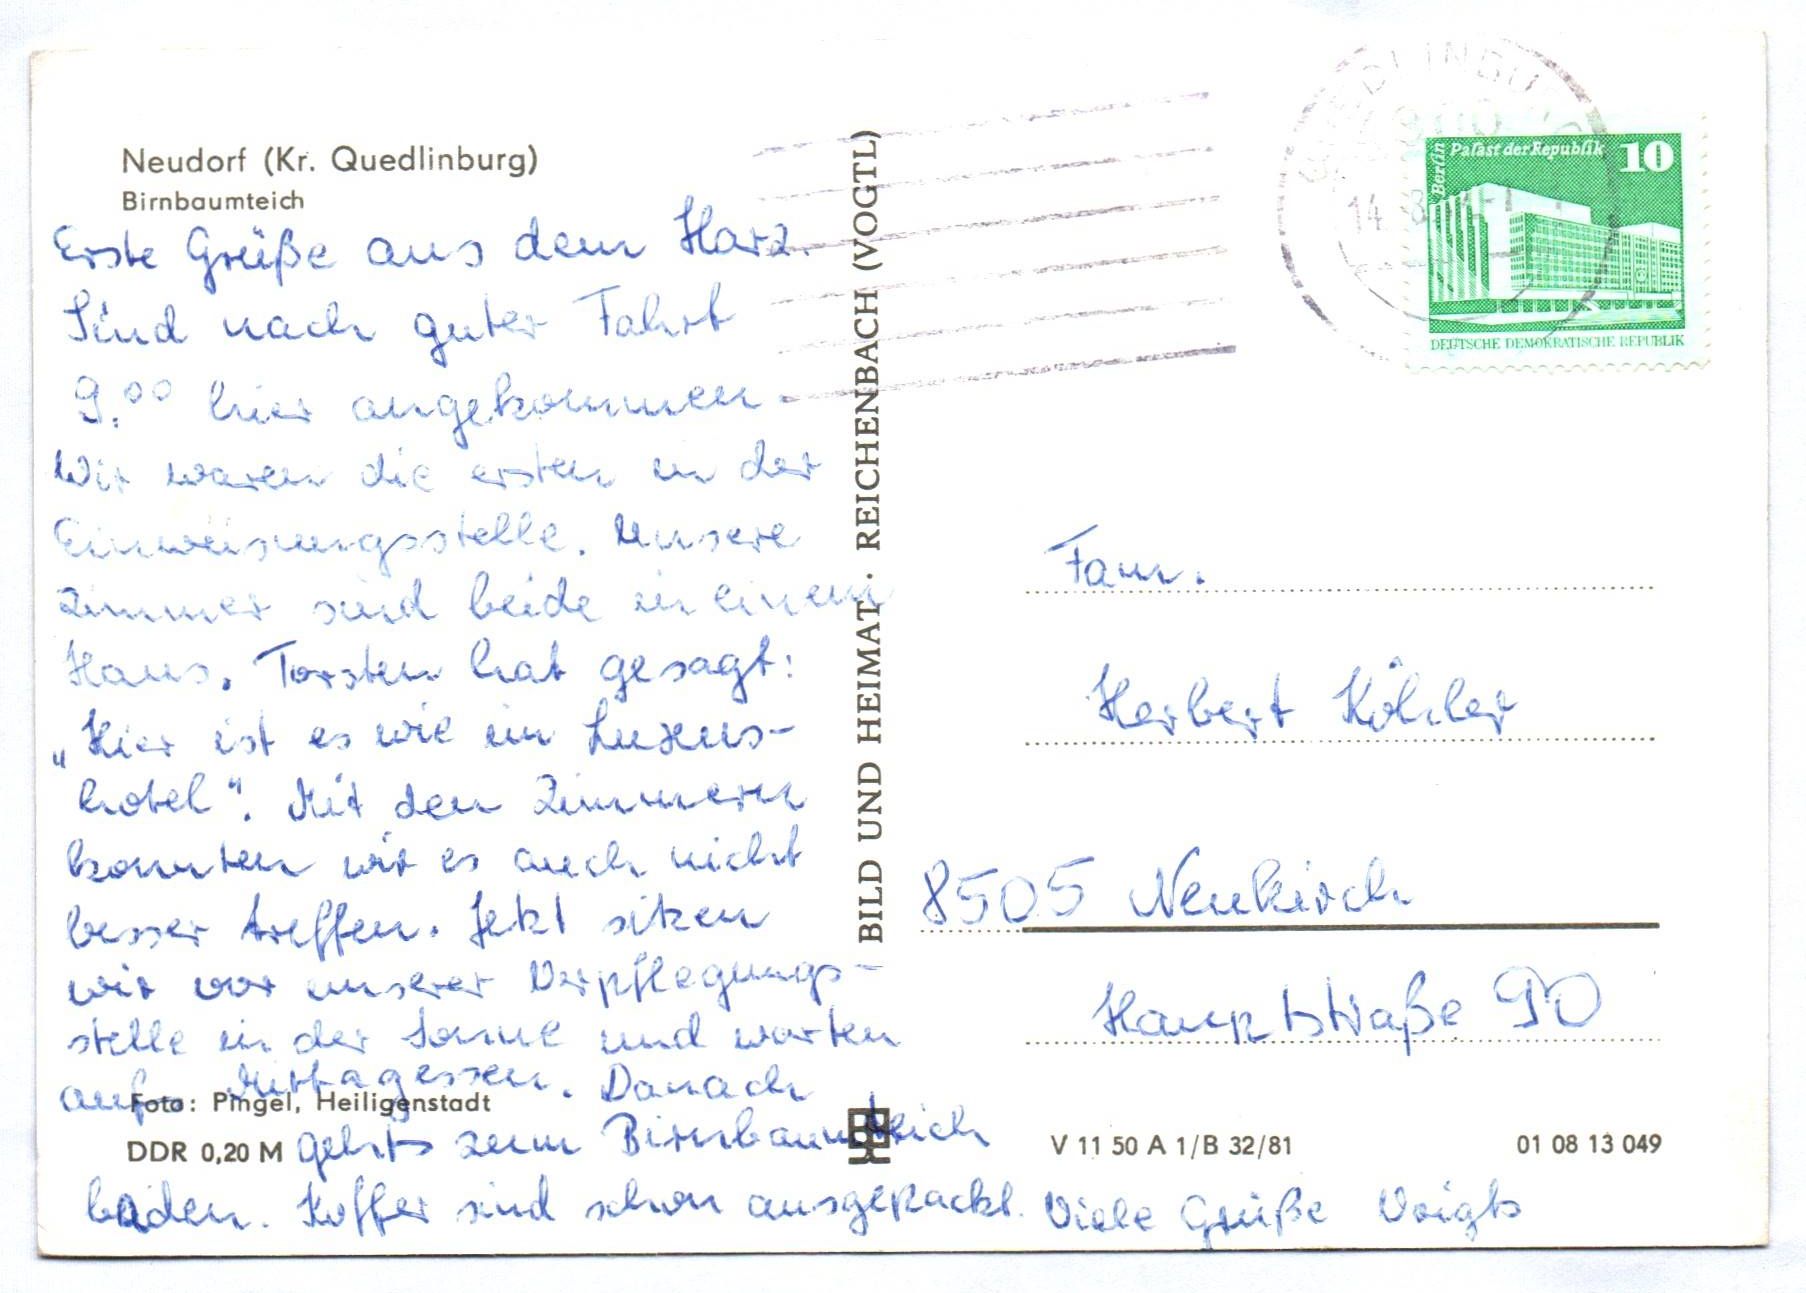 Neudorf (Kr. Quedlinburg)
Birnbaumteich
Erste Grüße aus dem Harz.
Sind nach guter Fahrt
9.00 hier angekommen.
Wir waren die ersten in der
Einweisungsstelle. Unsere
Zimmer sind beide in einem
Haus. Torsten hat gesagt:
„Hier ist es wie im Luxus-
hotel“. Mit den Zimmern
konnten wir es auch nicht
besser treffen. Jetzt sitzen
wir vor unserer Verpflegungs-
stelle in der Sonne und warten
aufs Mittagessen. Danach
gehts zum Birnbaumteich
baden. Koffer sind schon ausgepackt. Viele Grüße Voigts
Foto: Pingel, Heiligenstadt
DDR 0,20 M
BILD UND HEIMAT · REICHENBACH (VOGTL)
V 11 50 A 1/B 32/81
01 08 13 049
QUEDLINBURG
14. 8.
Berlin
Palast der Republik
10
DEUTSCHE DEMOKRATISCHE REPUBLIK
Fam.
Herbert Köhler
8505 Neukirch
Hauptstraße 90